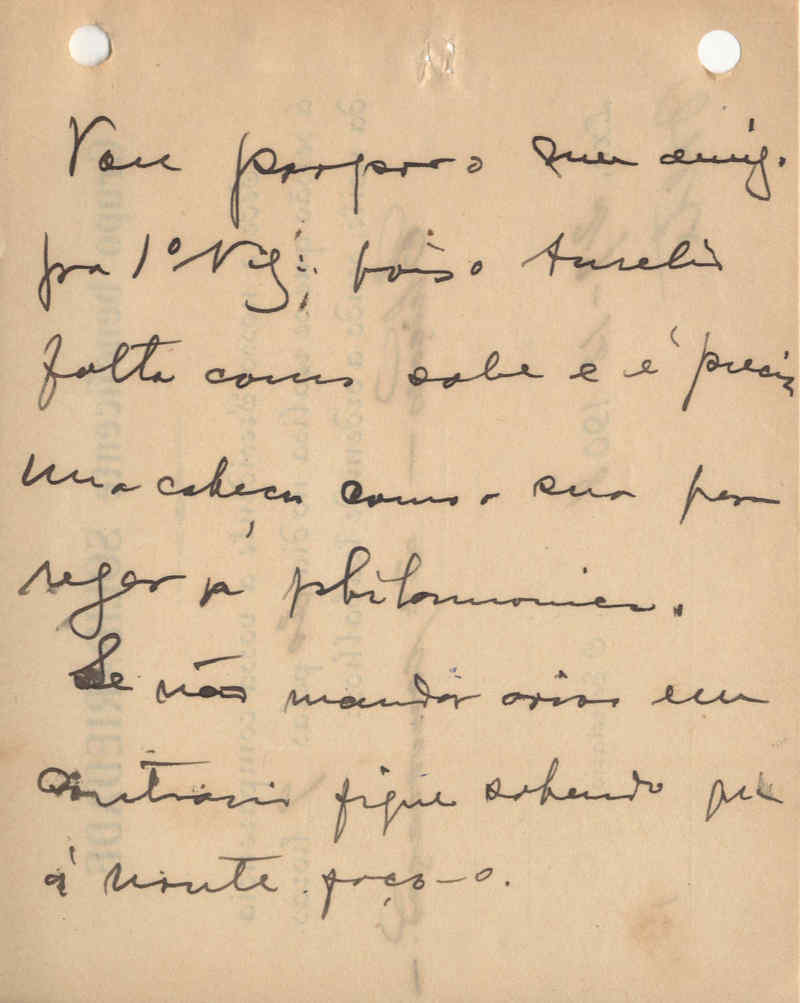 Vou propor o meu amig.
pra 1º Vig∴, pois o Aurelio
falta como sabe e é preciso
uma cabeça como a sua para
reger a philarmonica.
Se não mandar aviso em
contrario fique sabendo que
á noute faço-o.